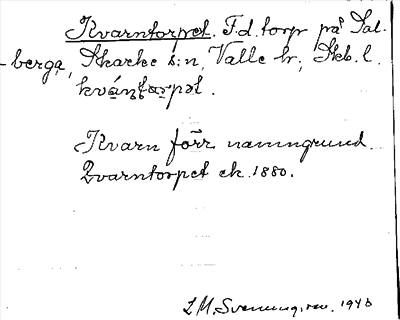 Kvarntorpet. F.d. torp på Sal-
berga, Skarke s:n, Valle hr; Skb. l.
Kvarn förr namngrund.
Qvarntorpet ek. 1880.
L M. Svenungsson. 1948